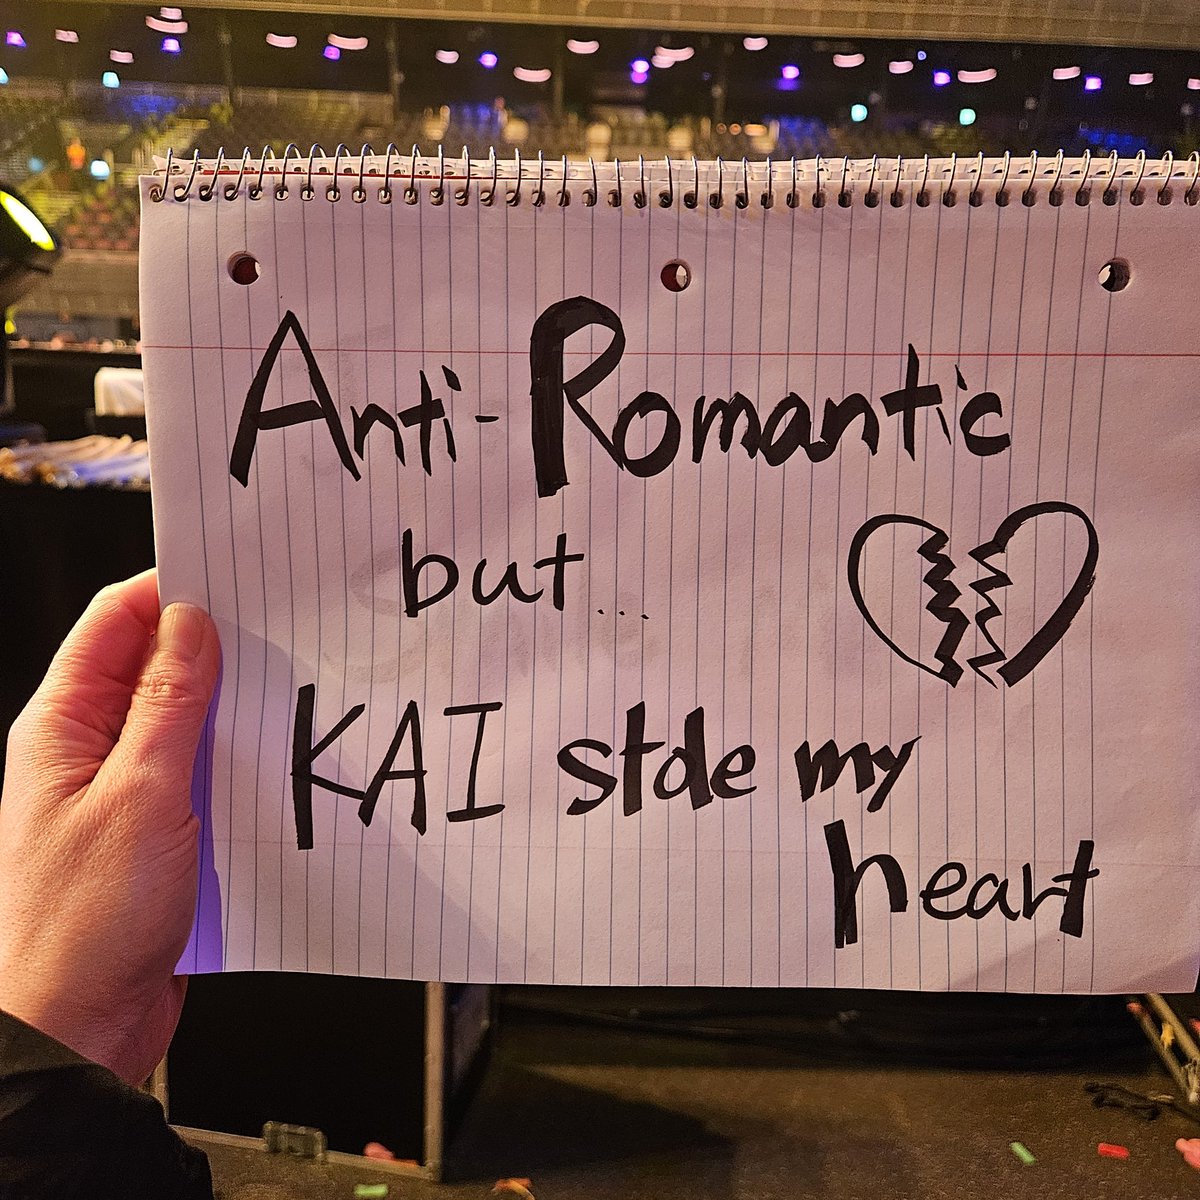 Anti-Romantic
but...
KAI stole my
heart